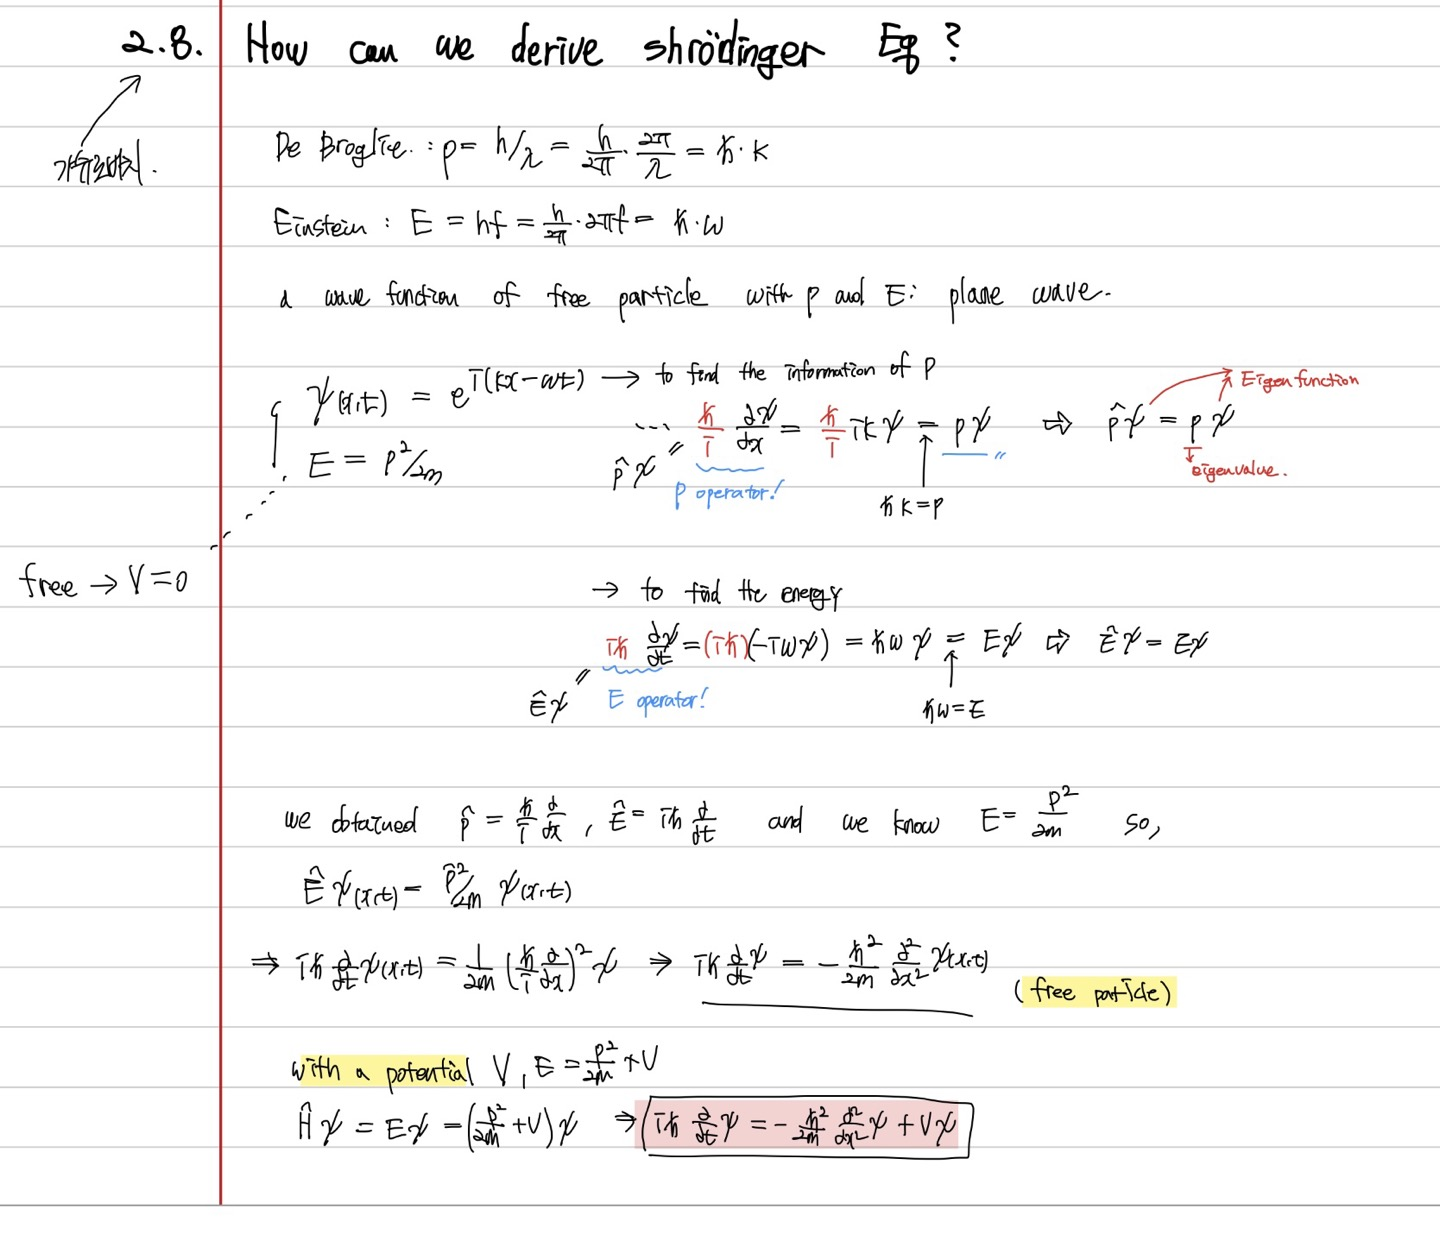 2.8. How can we derive shrödinger Eq ?
De Broglie. : p = h/λ = h/2π · 2π/λ = ħ·k
Einstein : E = hf = h/2π · 2πf = ħ·ω
a wave function of free particle with p and E : plane wave.
ψ(x,t) = e^i(kx-ωt) → to find the information of p
Eigenfunction
... p̂ψ = ħ/i ∂ψ/∂x = ħ/i ikψ = pψ ⇨ p̂ψ = pψ
E = p²/2m
eigenvalue.
P operator!
ħk=p
free → V=0
→ to find the energy
iħ ∂ψ/∂t = (iħ)(-iωψ) = ħωψ = Eψ ⇨ Êψ = Eψ
Êψ = E operator!
ħω=E
we obtained p̂ = ħ/i ∂/∂x , Ê = iħ ∂/∂t and we know E = p²/2m so,
Êψ(x,t) = p̂²/2m ψ(x,t)
⇒ iħ ∂/∂t ψ(x,t) = 1/2m (ħ/i ∂/∂x)² ψ ⇒ iħ ∂/∂t ψ = - ħ²/2m ∂²/∂x² ψ(x,t)
(free particle)
with a potential V, E = p²/2m + V
Ĥψ = Eψ = (p²/2m + V)ψ ⇒ iħ ∂/∂t ψ = - ħ²/2m ∂²/∂x² ψ + Vψ